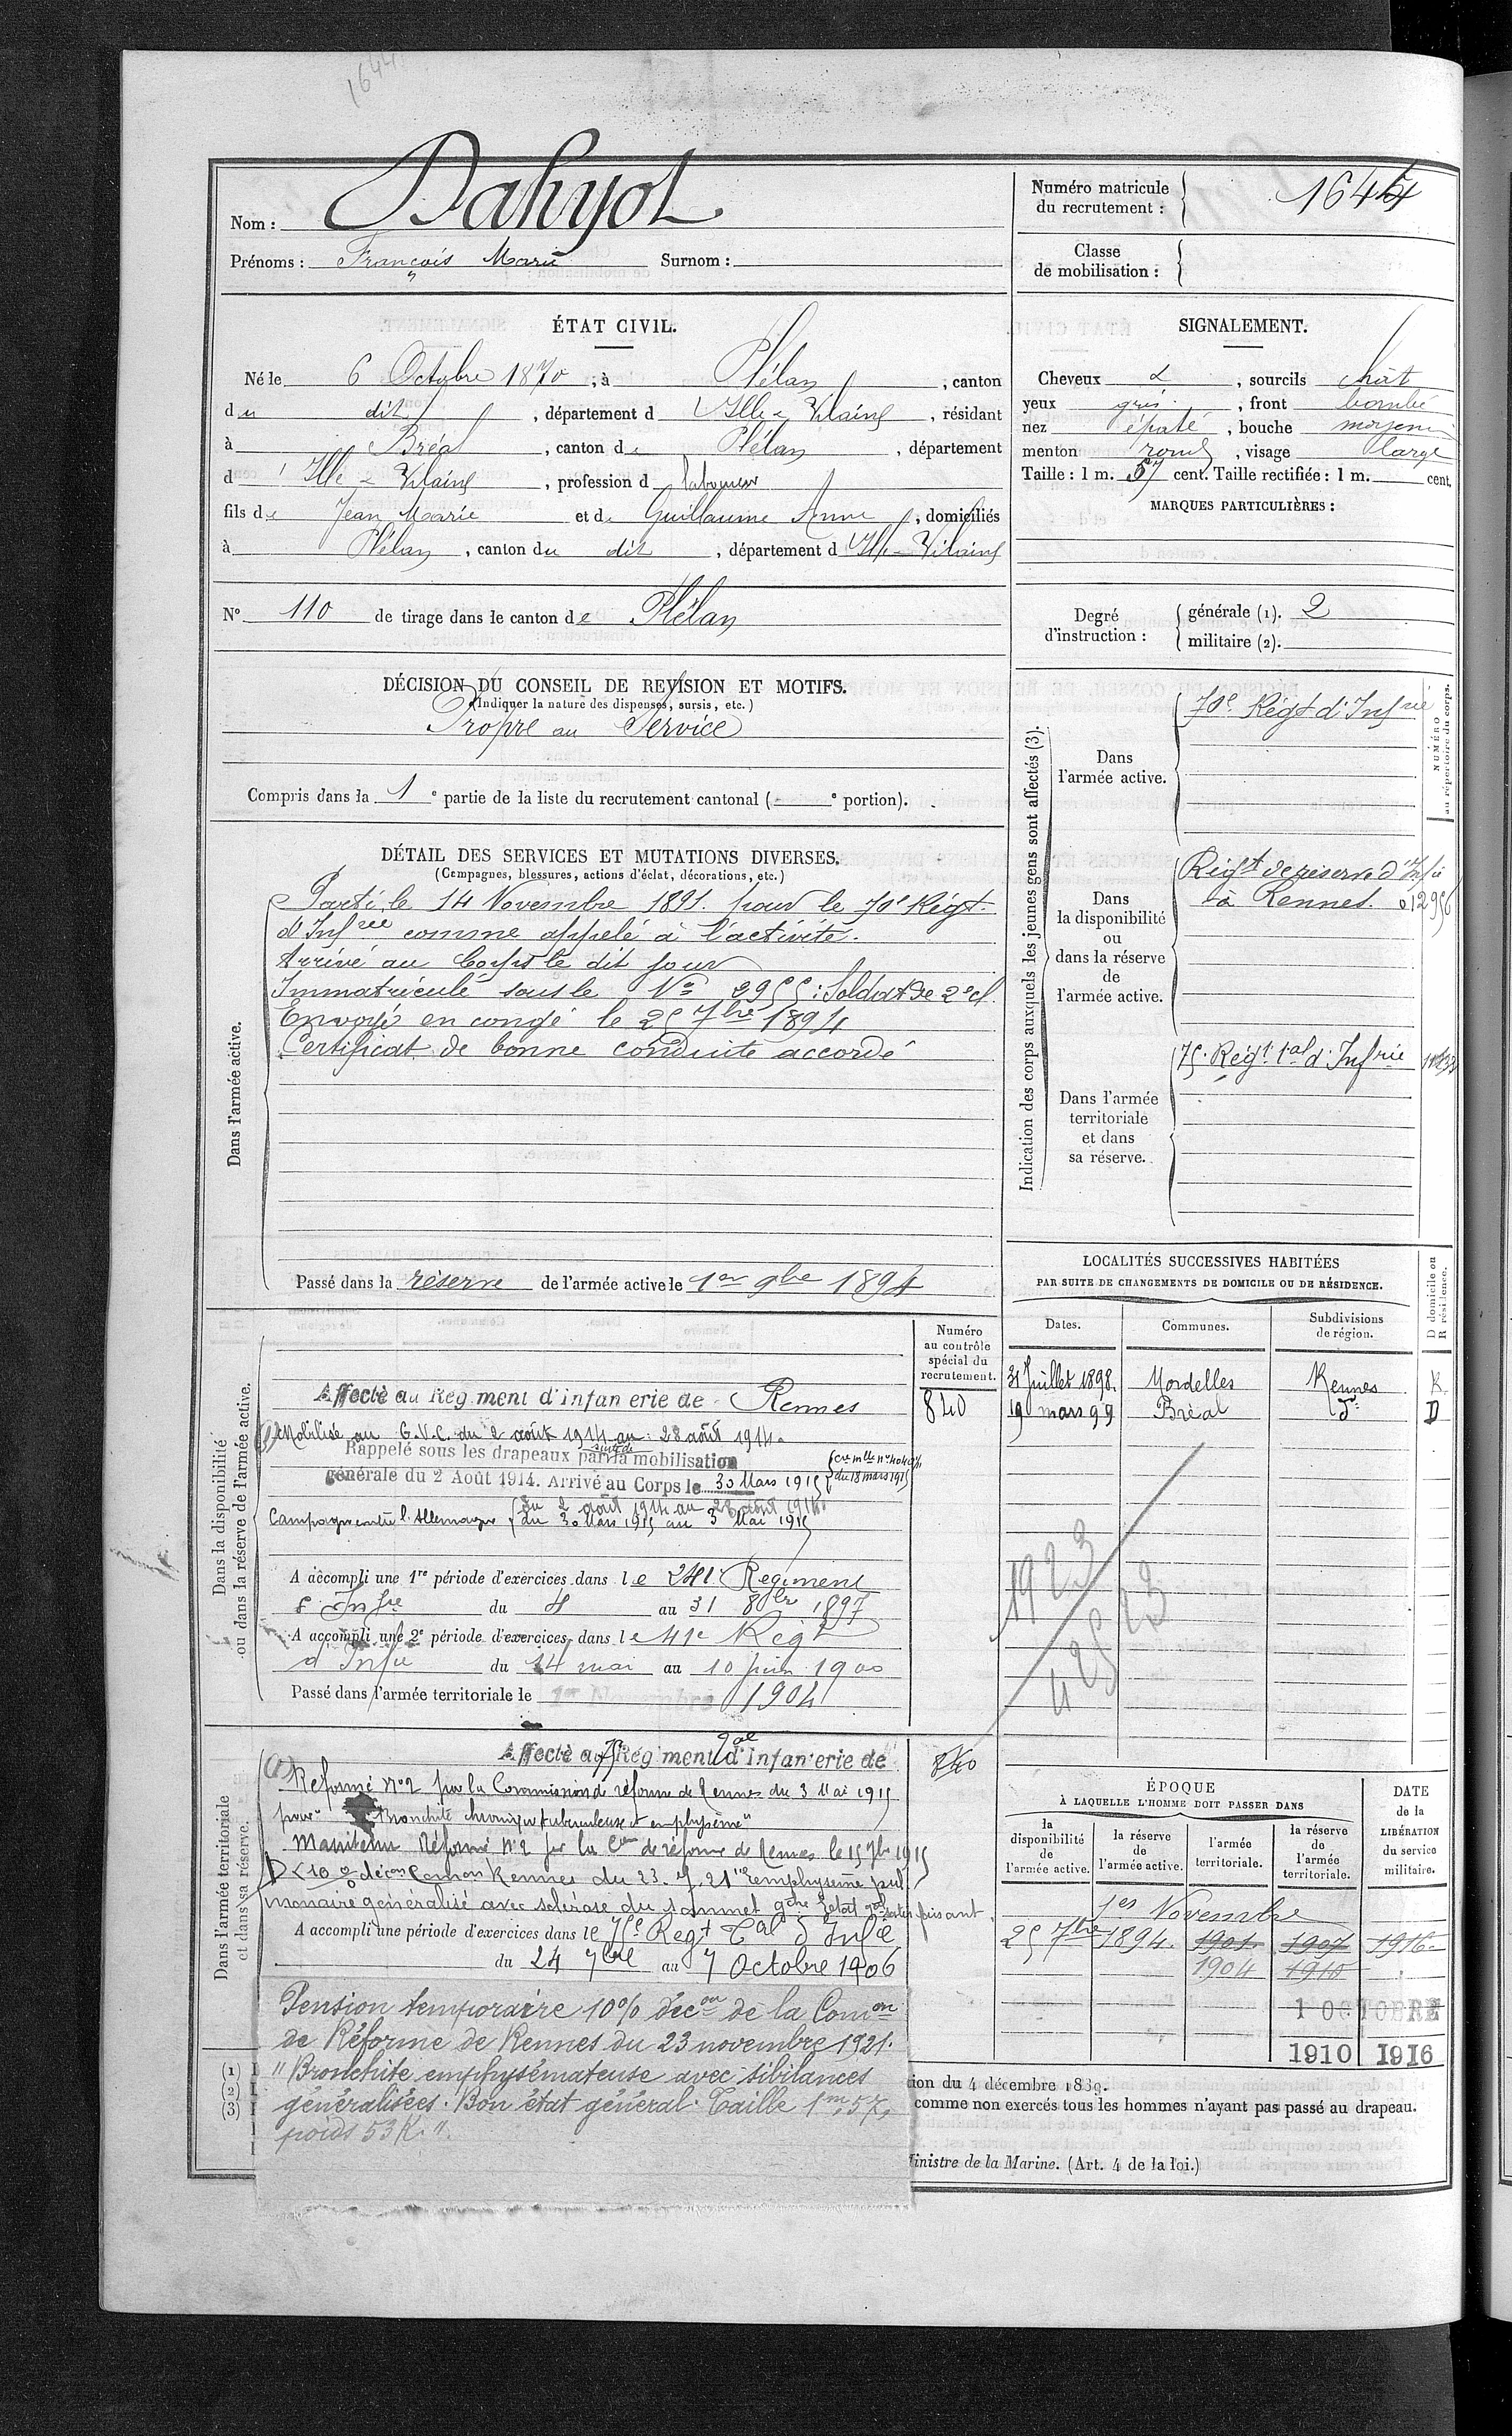 1644
Nom : Dahyot
Prénoms : François Marie Surnom :
Numéro matricule du recrutement : 1644
Classe de mobilisation :
ÉTAT CIVIL.
Né le 6 Octobre 1870, à Plélan, canton
du dit, département d'Ille-&-Vilaine, résidant
à Bréal, canton de Plélan, département
d'Ille-&-Vilaine, profession de laboureur
fils de Jean Marie et de Guillaume Anne, domiciliés
à Plélan, canton du dit, département d'Ille-&-Vilaine
SIGNALEMENT.
Cheveux &, sourcils chât
yeux gris, front bombé
nez épaté, bouche moyenne
menton rond, visage large
Taille : 1 m. 57 cent. Taille rectifiée : 1 m. cent.
MARQUES PARTICULIÈRES :
N° 110 de tirage dans le canton de Plélan
Degré d'instruction : générale (1). 2
militaire (2).
DÉCISION DU CONSEIL DE REVISION ET MOTIFS.
(Indiquer la nature des dispenses, sursis, etc.)
Propre au Service
Compris dans la 1e partie de la liste du recrutement cantonal (- e portion).
DÉTAIL DES SERVICES ET MUTATIONS DIVERSES.
(Campagnes, blessures, actions d'éclat, décorations, etc.)
Dans l'armée active.
Parti le 14 Novembre 1891. pour le 70e Régt.
d'Infrie comme appelé à l'activité.
Arrivé au Corps le dit jour
Immatriculé sous le No 2955 : Soldat de 2e cl.
Envoyé en congé le 25 7bre 1894
Certificat de bonne conduite accordé
Passé dans la réserve de l'armée active le 1er 9bre 1894
Indication des corps auxquels les jeunes gens sont affectés (3).
NUMÉRO au répertoire du corps.
Dans l'armée active.
70e Régt d'Infrie
Dans la disponibilité ou dans la réserve de l'armée active.
Régt de réserve d'Infie
à Rennes. 012956
Dans l'armée territoriale et dans sa réserve.
75e Régt tal d'Infrie
LOCALITÉS SUCCESSIVES HABITÉES
PAR SUITE DE CHANGEMENTS DE DOMICILE OU DE RÉSIDENCE.
Dates. Communes. Subdivisions de région. D domicile ou R résidence.
31 Juillet 1898. Mordelles Rennes R
19 mars 99 Bréal do D
1923
Dans la disponibilité ou dans la réserve de l'armée active.
Numéro au contrôle spécial du recrutement.
Affecté au Régiment d'infanterie de Rennes 840
(1) Mobilisé au G.V.C. du 2 août 1914 au 28 août 1914.
Rappelé sous les drapeaux par suite de la mobilisation
générale du 2 Août 1914. Arrivé au Corps le 30 Mars 1915
du 18 mars 1915
Campagne contre l'Allemagne { du 2 août 1914 au 28 août 1914
du 30 Mars 1915 au 3 Mai 1915
A accompli une 1re période d'exercices dans le 241e Régiment
d'Infie du 4 au 31 8bre 1897
A accompli une 2e période d'exercices dans le 41e Régt
d'Infie du 14 mai au 10 juin 1900
Passé dans l'armée territoriale le 1er Novembre 1904
Dans l'armée territoriale et dans sa réserve.
Affecté au 75 Régiment tal d'infanterie de 840
(1) Réformé No 2 par la Commission de réforme de Rennes du 3 Mai 1915
pour "Bronchite chronique tuberculeuse et emphysème"
Maintenu Réformé No 2 par la Con de réforme de Rennes le 15 7bre 1915
D<10% décon Comon Rennes du 23.7.21 "Emphysème pul
monaire généralisé avec sclérose du sommet gche Etat gal satisfaisant.
A accompli une période d'exercices dans le 75e Régt Tal d'Infie
du 24 7bre au 7 Octobre 1906
Pension temporaire 10% décon de la Comon
de Réforme de Rennes du 23 novembre 1921.
"Bronchite emphysémateuse avec sibilances
généralisées. Bon état général. Taille 1m,57,
poids 53K."
ÉPOQUE
À LAQUELLE L'HOMME DOIT PASSER DANS
la disponibilité de l'armée active.
la réserve de l'armée active.
l'armée territoriale.
la réserve de l'armée territoriale.
DATE de la LIBÉRATION du service militaire.
1er Novembre
25 7bre 1894. 1901 1907 1916
1904 1910
1 OCTOBRE
1910 1916
(1) I
(2) I
(3) I
tion du 4 décembre 1889.
comme non exercés tous les hommes n'ayant pas passé au drapeau.
Ministre de la Marine. (Art. 4 de la loi.)